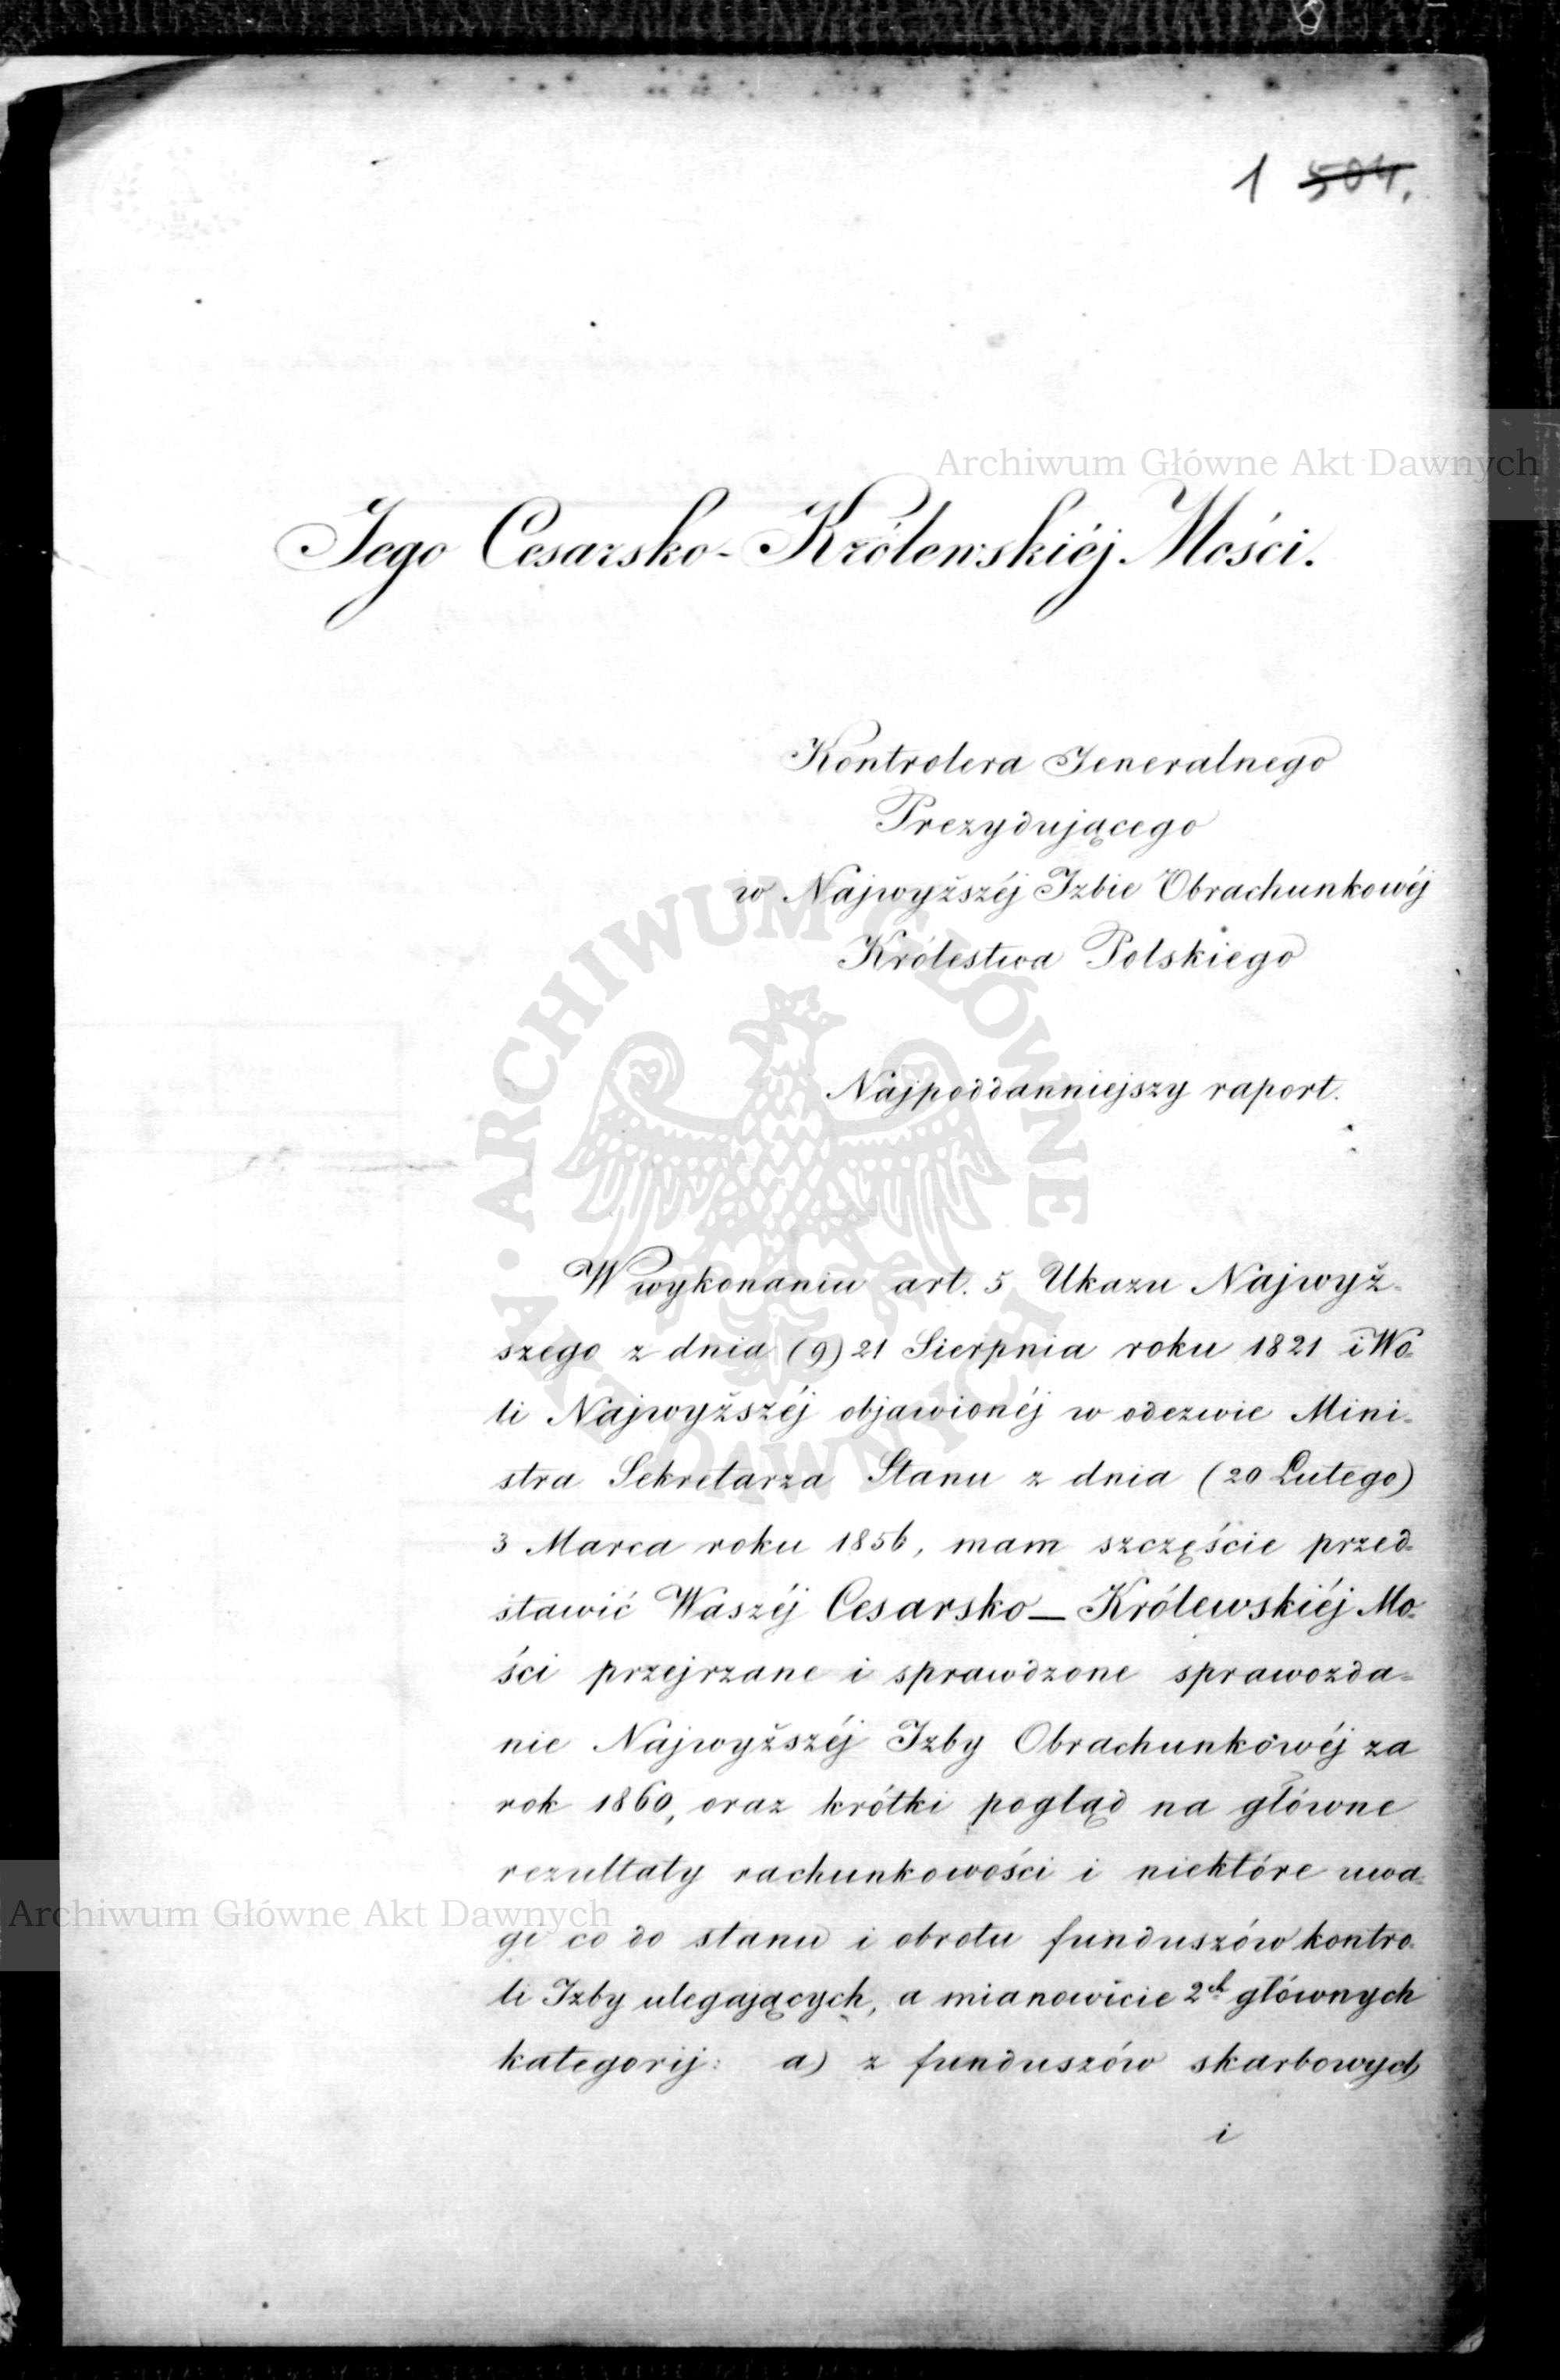 1 504.
Archiwum Główne Akt Dawnych
Jego Cesarsko-Królewskiéj Mości.
Kontrolera Jeneralnego
Prezydującego
w Najwyższéj Izbie Obrachunkowéj
Królestwa Polskiego
Najpoddanniejszy raport.
ARCHIWUM GŁÓWNE AKT DAWNYCH
W wykonaniu art. 5 Ukazu Najwyż-
szego z dnia (9) 21 Sierpnia roku 1821 i Wo-
li Najwyższéj objawionéj w odezwie Mini-
stra Sekretarza Stanu z dnia (20 Lutego)
3 Marca roku 1856, mam szczęście przed-
stawić Waszéj Cesarsko-Królewskiéj Mo-
ści przejrzane i sprawdzone sprawozda-
nie Najwyższéj Izby Obrachunkowéj za
rok 1860, oraz krótki pogląd na główne
rezultaty rachunkowości i niektóre uwa-
Archiwum Główne Akt Dawnych
gi co do stanu i obrotu funduszów kontro-
li Izby ulegających, a mianowicie 2ch głównych
kategorij: a) z funduszów skarbowych
i